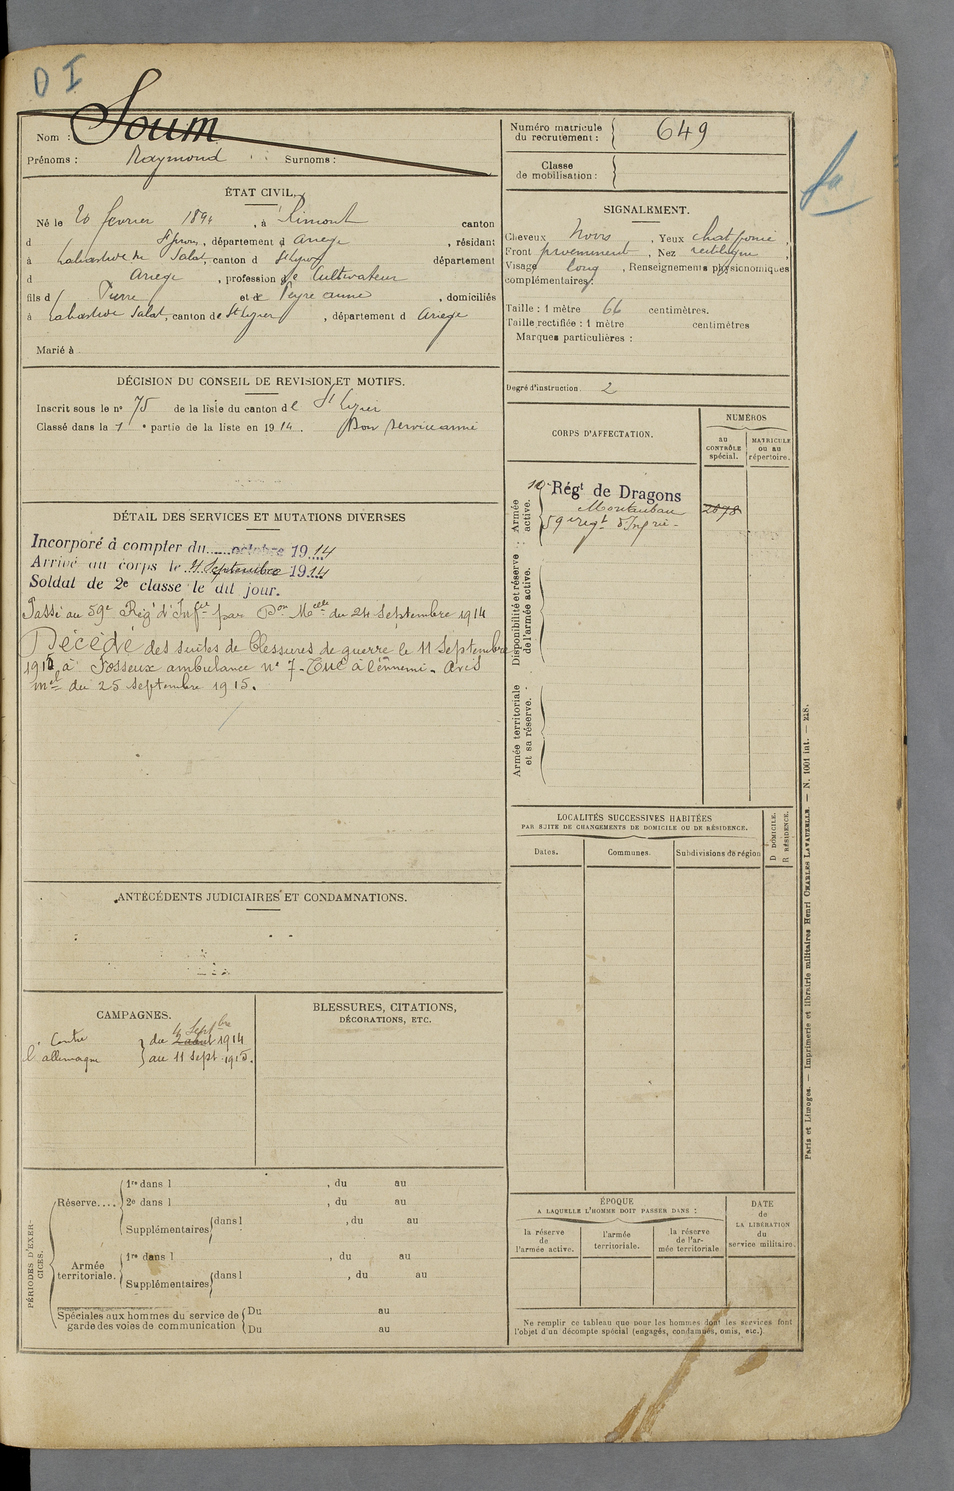 D I
Nom : Soum
Prénoms : Raymond Surnoms :
ÉTAT CIVIL.
Né le 20 fevrier 1894, à Rimont canton
d St Girons, département d Ariege, résidant
à Labastide du Salat, canton d St Lizier département
d Ariege, profession de Cultivateur
fils d Pierre et de Peyre anne, domiciliés
à Labastide Salat, canton de St Lizier, département d Ariege
Marié à
DÉCISION DU CONSEIL DE REVISION ET MOTIFS.
Inscrit sous le no 75 de la liste du canton de St Lizier
Classé dans la 1e partie de la liste en 1914. Bon service armé
DÉTAIL DES SERVICES ET MUTATIONS DIVERSES
Incorporé à compter du octobre 1914
Arrivé au corps le 4 Septembre 1914
Soldat de 2e classe le dit jour.
Passé au 59e Régt d'Infie par Don Melle du 24 Septembre 1914
Décédé des suites de blessures de guerre le 11 Septembre
1915 à Fosseux ambulance no 7 - Tué à l'ennemi - Avis
mel du 25 septembre 1915.
ANTÉCÉDENTS JUDICIAIRES ET CONDAMNATIONS.
CAMPAGNES.
Contre l'allemagne
4 Septbre
du 2 août 1914
au 11 Sept 1915.
BLESSURES, CITATIONS,
DÉCORATIONS, ETC.
PÉRIODES D'EXERCICES.
Réserve....
1re dans l , du au
2e dans l , du au
Supplémentaires dans l , du au
Armée territoriale.
1re dans l , du au
Supplémentaires dans l , du au
Spéciales aux hommes du service de garde des voies de communication
Du au
Du au
Numéro matricule du recrutement : 649
Classe de mobilisation :
SIGNALEMENT.
Cheveux Noirs, Yeux chat foncé,
Front proemment, Nez rectiligne,
Visage long, Renseignements physionomiques
complémentaires :
Taille : 1 mètre 66 centimètres.
Taille rectifiée : 1 mètre centimètres
Marques particulières :
Degré d'instruction 2
CORPS D'AFFECTATION.
NUMÉROS
AU CONTRÔLE spécial.
MATRICULE OU AU répertoire.
Armée active.
10e Régt de Dragons
Montauban 2078
59e regt d'Infrie -
Disponibilité et réserve de l'armée active.
Armée territoriale et sa réserve.
LOCALITÉS SUCCESSIVES HABITÉES
PAR SUITE DE CHANGEMENTS DE DOMICILE OU DE RÉSIDENCE.
Dates. Communes. Subdivisions de région
D DOMICILE.
R RÉSIDENCE.
ÉPOQUE
A LAQUELLE L'HOMME DOIT PASSER DANS :
la réserve de l'armée active.
l'armée territoriale.
la réserve de l'armée territoriale
DATE de LA LIBÉRATION du service militaire.
Ne remplir ce tableau que pour les hommes dont les services font
l'objet d'un décompte spécial (engagés, condamnés, omis, etc.)
Paris et Limoges. — Imprimerie et librairie militaires Henri CHARLES LAVAUZELLE. — N. 1001 int. — 248.